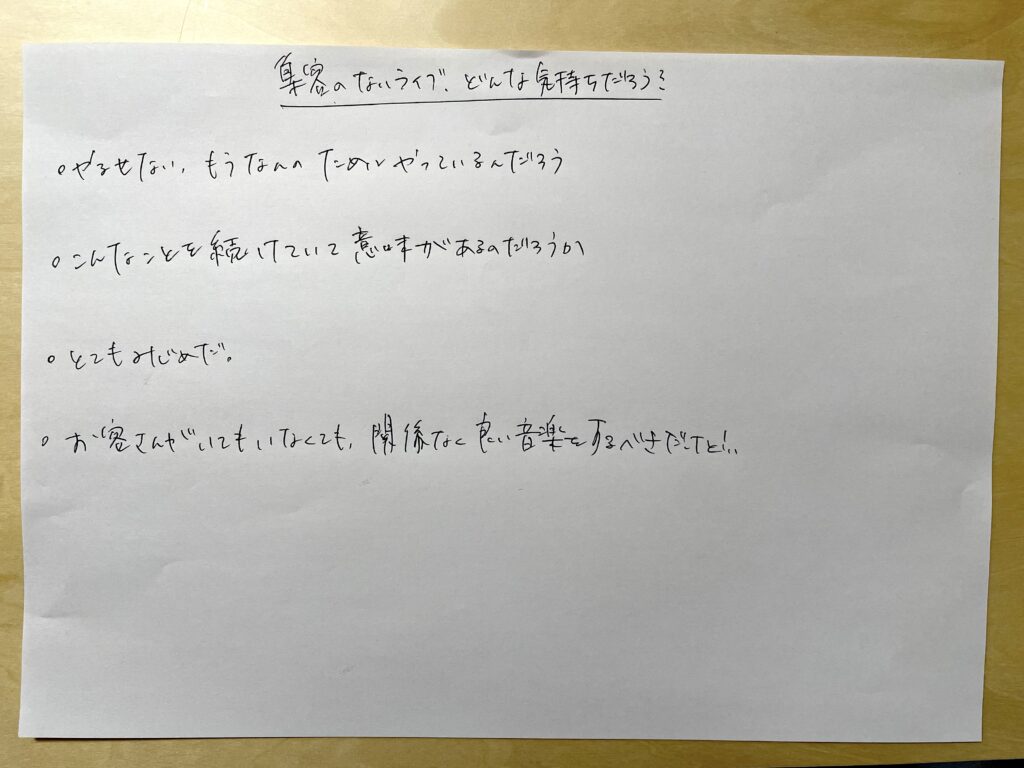 集客のないライブ、どんな気持ちだろう?
○やるせない、もうなんのためにやっているんだろう
○こんなことを続けていて意味があるのだろうか
○とてもみじめだ。
○お客さんがいてもいなくても、関係なく良い音楽をするべきだけど…